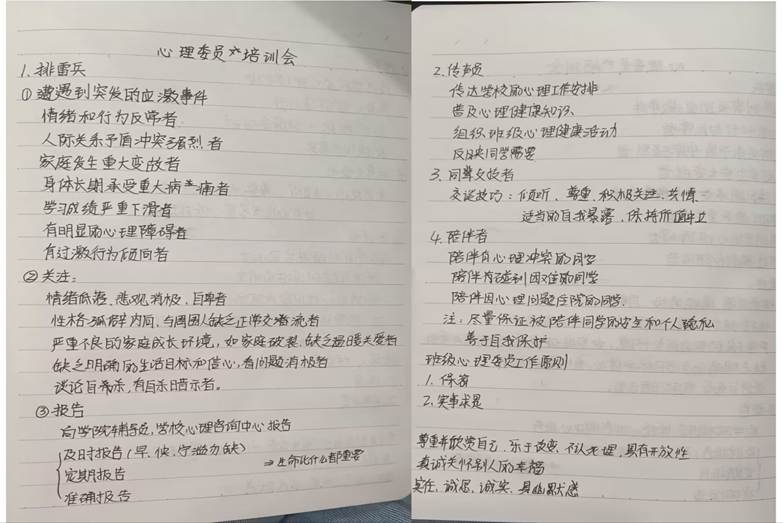 心理委员培训会
1. 排雷兵
① 遭遇到突发的应激事件
情绪和行为反常者
人际关系矛盾冲突强烈者
家庭发生重大变故者
身体长期承受重大病痛者
学习成绩严重下滑者
有明显的心理障碍者
有过激行为倾向者
② 关注:
情绪低落、悲观消极、自卑者
性格孤僻内向,与周围人缺乏正常交流者
严重不良的家庭成长环境,如家庭破裂、缺乏温暖关爱者
缺乏明确的生活目标和信心,看问题消极者
谈论自杀,有自杀暗示者。
③ 报告
向学院辅导员,学校心理咨询中心报告
及时报告(早、快、宁滥勿缺)
定期报告 ⇒生命比什么都重要
准确报告
2. 传声员
传达学校的心理工作安排
普及心理健康知识、
组织班级心理健康活动
反映同学需要
3. 同辈交谈者
交谈技巧:倾听、尊重、积极关注、共情、
适当的自我暴露、保持价值中立
4. 陪伴者
陪伴有心理冲突的同学
陪伴有碰到困难的同学
陪伴因心理问题住院的同学.
注:尽量保证被陪伴同学的安全和个人隐私
善于自我保护
班级心理委员工作原则
1. 保密
2. 实事求是
尊重并欣赏自己,乐于改变,不认死理,具有开放性
真诚关怀别人的幸福
责任,诚恳,诚实,具幽默感